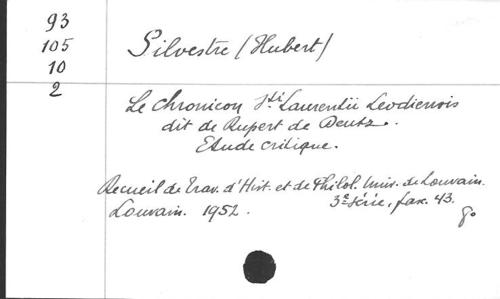 93
105
10
2
Silvestre (Hubert)
Le Chronicon Sti Laurentii Leodiensis
dit de Rupert de Deutz.
Etude critique.
Recueil de Trav. d'Hist. et de Philol. Univ. de Louvain.
3e série, fasc. 43.
Louvain. 1952.
8o